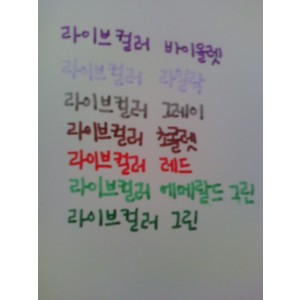 라이브컬러 바이올렛
라이브컬러 라일락
라이브컬러 그레이
라이브컬러 초콜렛
라이브컬러 레드
라이브컬러 에메랄드 그린
라이브컬러 그린